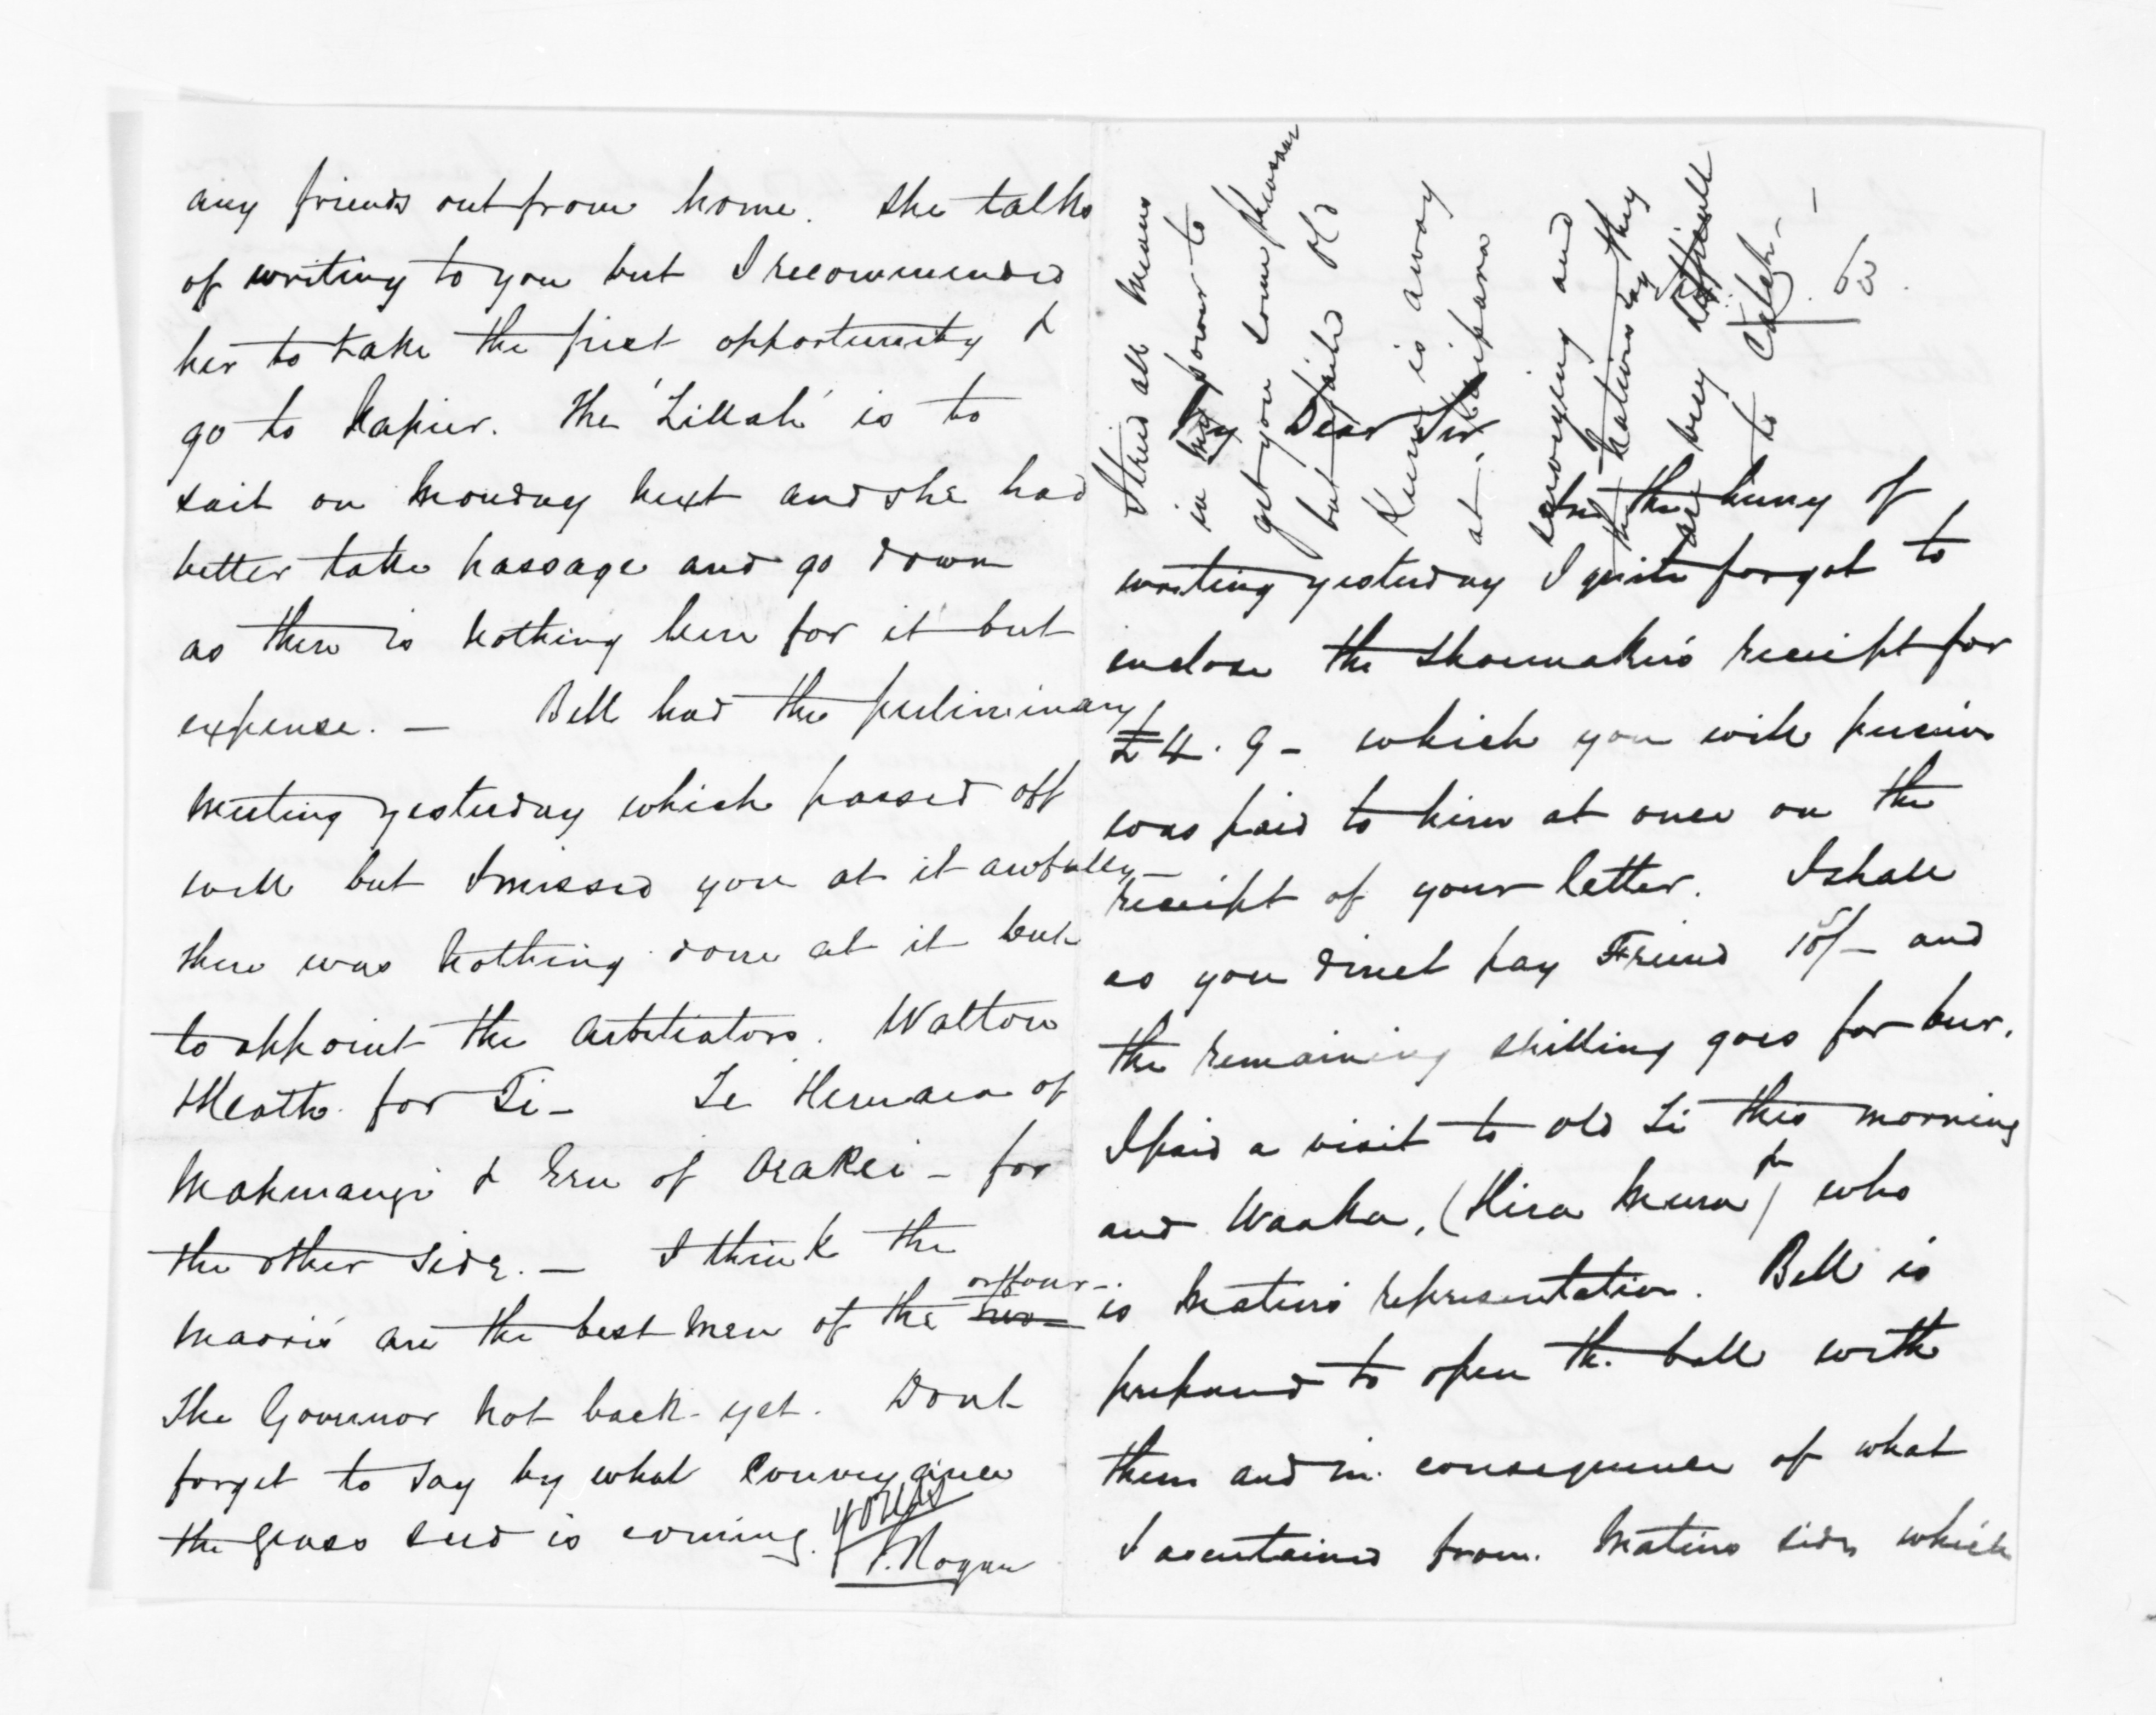 any friends out from home. She talks
of writing to you but I recommended
her to take the first opportunity &
go to Napier. The 'Zillah' is to
sail on Monday next and she had
better take passage and go down
as there is nothing here for it but
expense. — Bell had the preliminary
meeting yesterday which passed off
well but I missed you at it awfully —
there was nothing done at it but
to appoint the Arbitrators. Walton
& Heath for Ti — Te Hemara of
Mahurangi & Eru of Orakei — for
the other side. — I think the
Maoris are the best men of the two or four —
The Governor not back yet. Dont
forget to say by what Conveyance
the grass seed is coming.
Yours
J. Rogan
I tried all means
in my power to
get you some
but failed old
is away
at Kaipara
surveying and
the natives say they
are very difficult
to Catch. —
My Dear Sir
In the hurry of
writing yesterday I quite forgot to
enclose the Shoemakers receipt for
£4. 9 — which you will perceive
was paid to him at once on the
receipt of your letter. I shall
as you direct pay Friend 10/— and
the remaining shilling goes for beer.
I paid a visit to old Ti this morning
and Waaka, (Hira Mura) who
is Matiu's representative. Bell is
prepared to open the ball with
them and in consequence of what
I ascertained from Matius side which